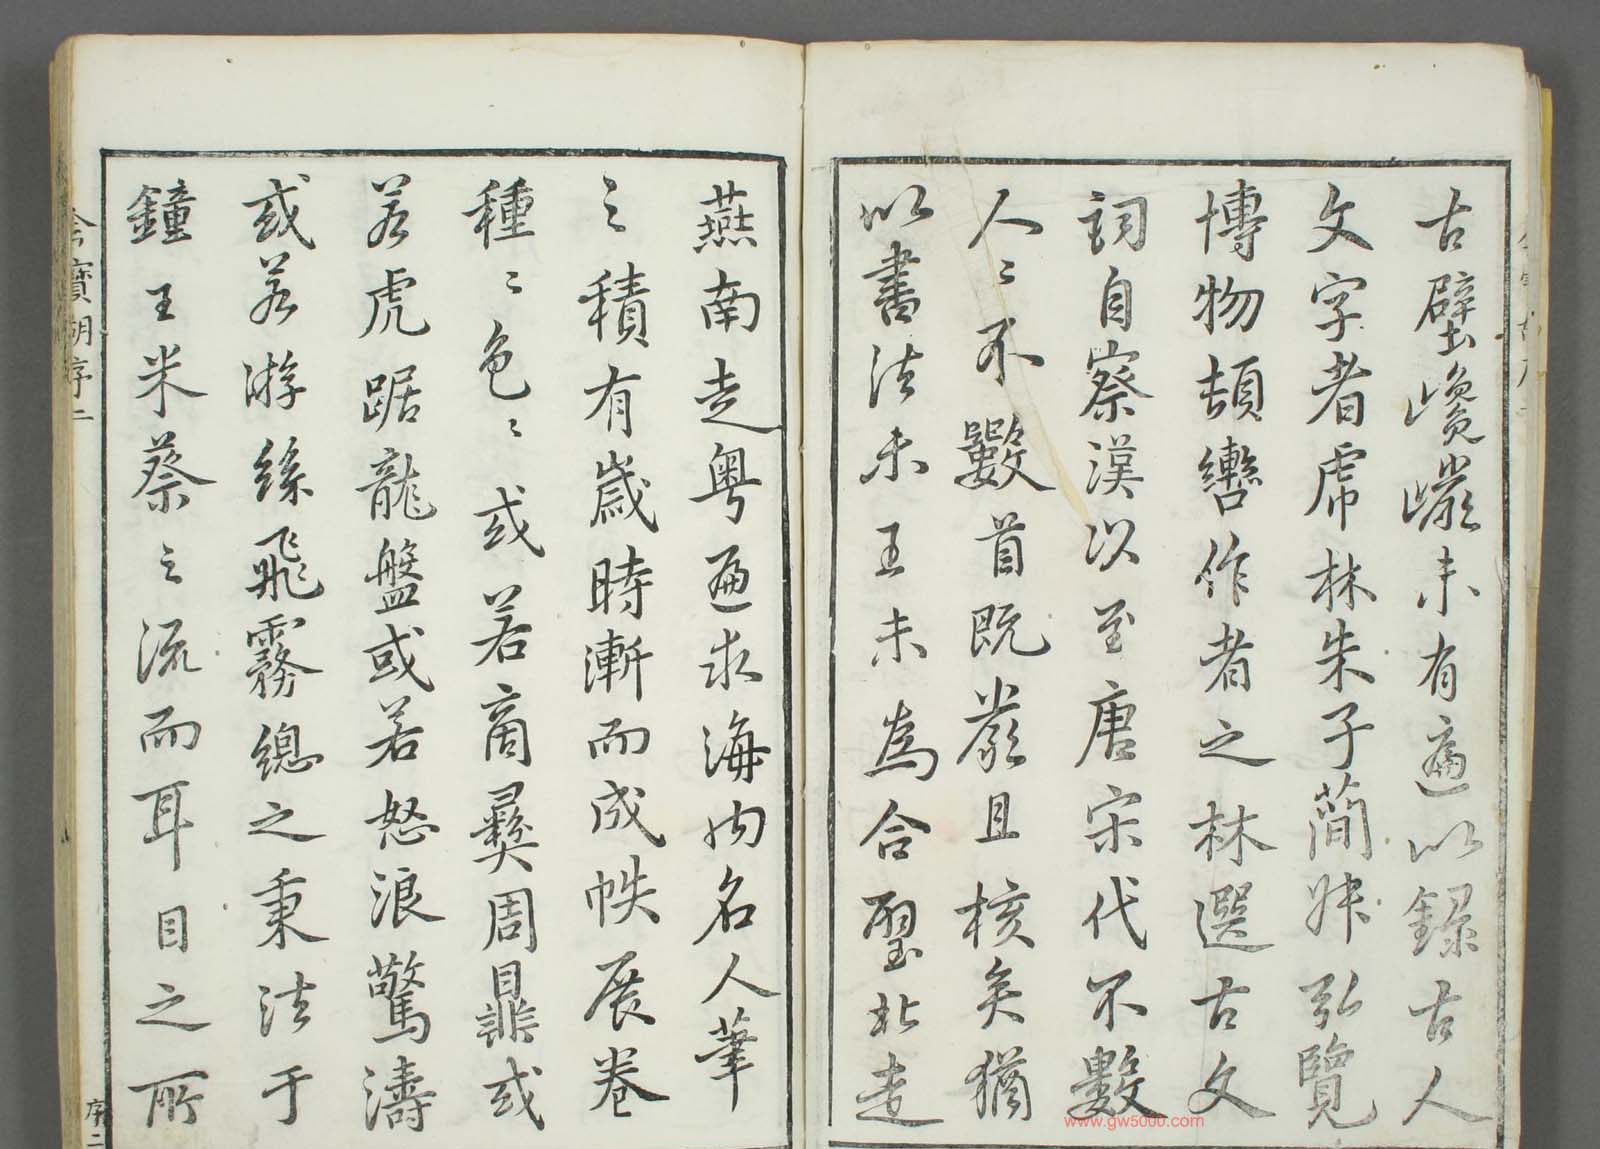 古壁巉巖未有遍以錄古人
文字者虎林朱子蕳叔弘覽
博物頡轡作者之林選古文
詞自察漢以至唐宋代不數
人〻不數首既嚴且核矣猶
以書法未工未為合璧北走
燕南走粤遍求海内名人筆
之積有歲時漸而成帙展卷
種〻色〻或若商彝周鼎或
若虎踞龍盤或若怒浪驚濤
或若游絲飛霧總之秉法于
鐘王米蔡之流而耳目之所
序二
序二
www.gw5000.com